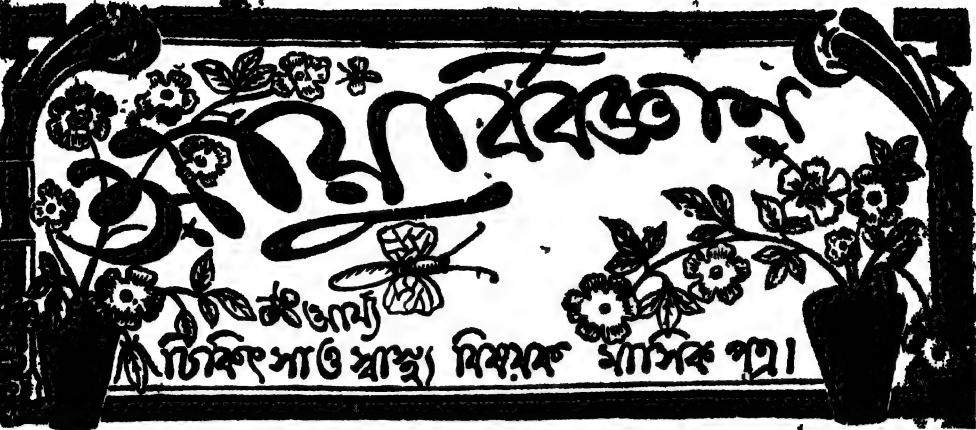 আয়ুর্ব্বিজ্ঞান
আর্য্য
চিকিৎসা ও স্বাস্থ্য বিষয়ক মাসিক পত্র।